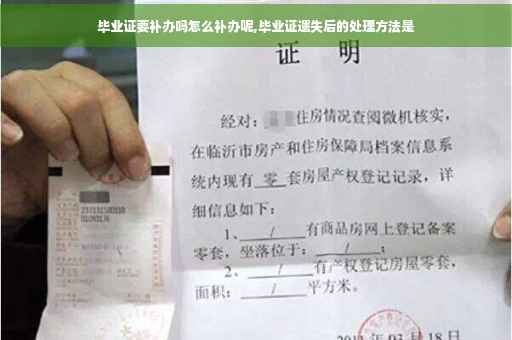 毕业证要补办吗怎么补办呢,毕业证遗失后的处理方法是
证 明
经对：住房情况查阅微机核实，
在临沂市房产和住房保障局档案信息系
统内现有 零 套房屋产权登记记录，详
细信息如下：
1、 / 有商品房网上登记备案
零套，坐落位于： / ；
2、 / 有产权登记房屋零套，
面积： / 平方米。
03 月 18 日